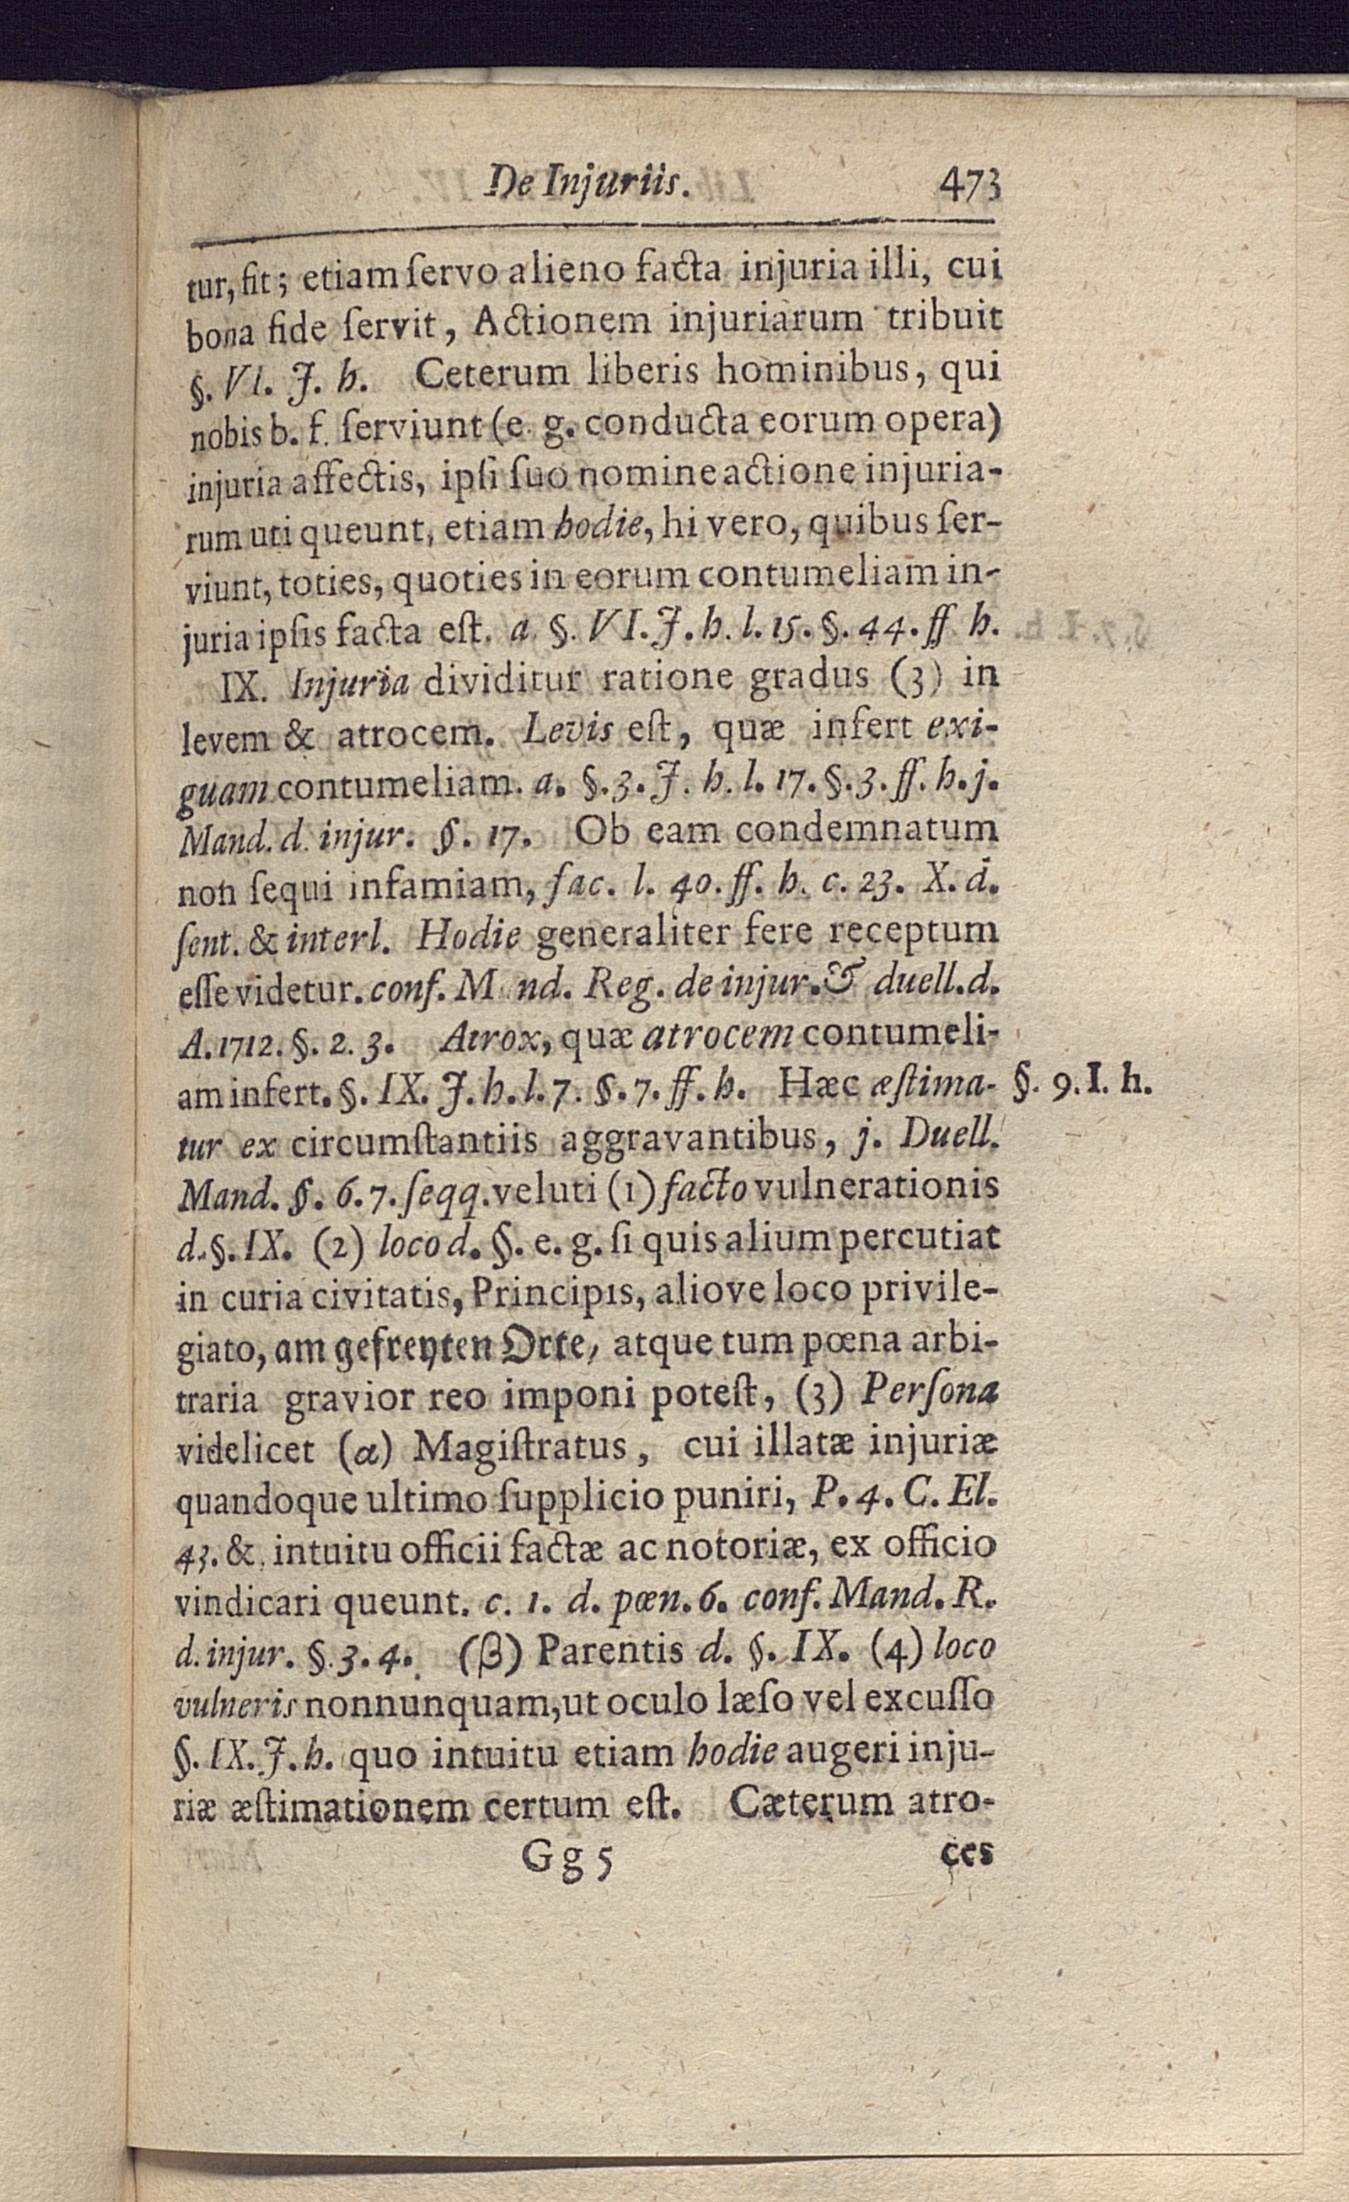 De Injuriis. 473
tur, fit; etiam ſervo alieno facta injuria illi, cui
bona fide ſervit, Actionem injuriarum tribuit
§. VI. J. h. Ceterum liberis hominibus, qui
nobis b. f. ſerviunt (e. g. conducta eorum opera)
injuria affectis, ipſi ſuo nomine actione injuria-
rum uti queunt, etiam hodie, hi vero, quibus ſer-
viunt, toties, quoties in eorum contumeliam in-
juria ipſis facta eſt. a. §. VI. J. h. l. 15. §. 44. ff h.
IX. Injuria dividitur ratione gradus (3) in
levem & atrocem. Levis eſt, quæ infert exi-
guam contumeliam. a. §. 3. J. h. l. 17. §. 3. ff. h. j.
Mand. d. injur. §. 17. Ob eam condemnatum
non ſequi infamiam, fac. l. 40. ff. h. c. 23. X. d.
ſent. & interl. Hodie generaliter fere receptum
eſſe videtur. conf. M nd. Reg. de injur. & duell. d.
A. 1712. §. 2. 3. Atrox, quæ atrocem contumeli-
am infert. §. IX. J. h. l. 7. §. 7. ff. h. Hæc æſtima- §. 9. I. h.
tur ex circumſtantiis aggravantibus, j. Duell.
Mand. §. 6. 7. ſeqq. veluti (1) facto vulnerationis
d. §. IX. (2) loco d. §. e. g. ſi quis alium percutiat
in curia civitatis, Principis, aliove loco privile-
giato, am gefreyten Orte, atque tum pœna arbi-
traria gravior reo imponi poteſt, (3) Perſona
videlicet (α) Magiſtratus, cui illatæ injuriæ
quandoque ultimo ſupplicio puniri, P. 4. C. El.
43. & intuitu officii factæ ac notoriæ, ex officio
vindicari queunt. c. 1. d. pœn. 6. conf. Mand. R.
d. injur. §. 3. 4. (β) Parentis d. §. IX. (4) loco
vulneris nonnunquam, ut oculo læſo vel excuſſo
§. IX. J. h. quo intuitu etiam hodie augeri inju-
riæ æſtimationem certum eſt. Cæterum atro-
Gg 5 ces